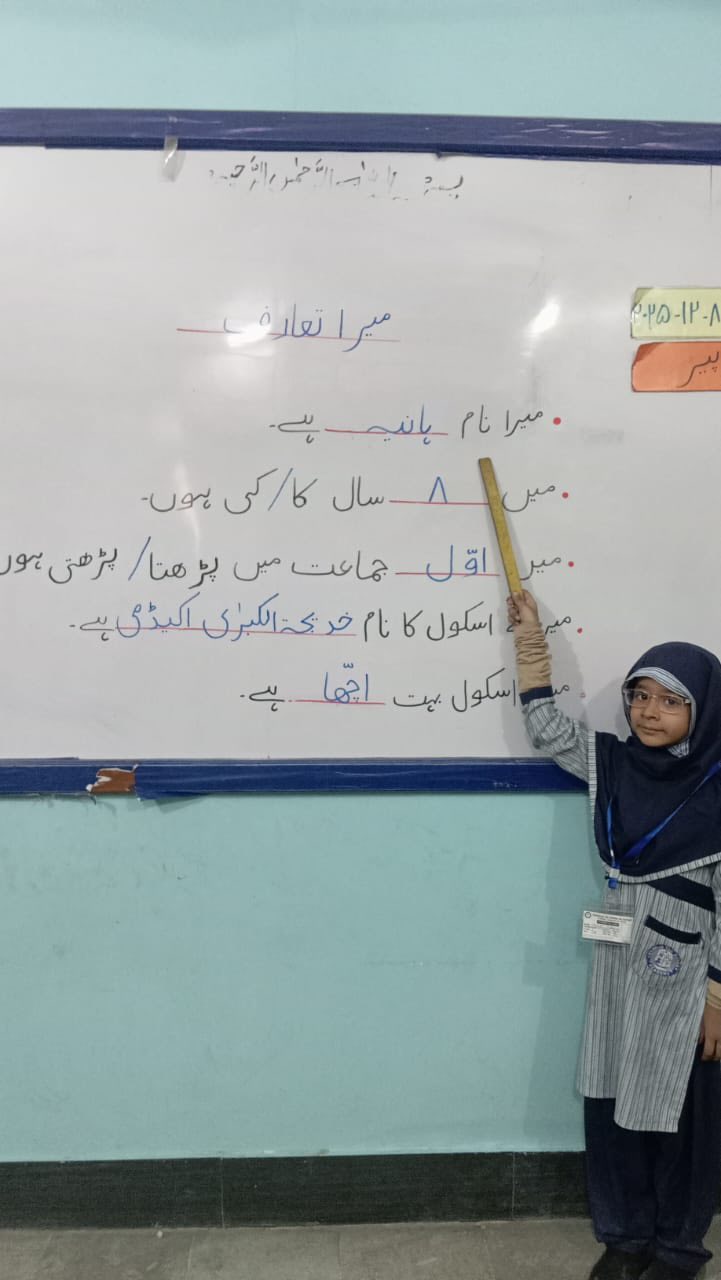 میرا تعارف
۲۰۲۵-۱۲-۸
پیر
• میرا نام ہانیہ ہے۔
• میں ۸ سال کا/کی ہوں۔
• میں اوّل جماعت میں پڑھتا/پڑھتی ہوں
• میرے اسکول کا نام خدیجۃ الکبرٰی اکیڈمی ہے۔
• اسکول بہت اچّھا ہے۔